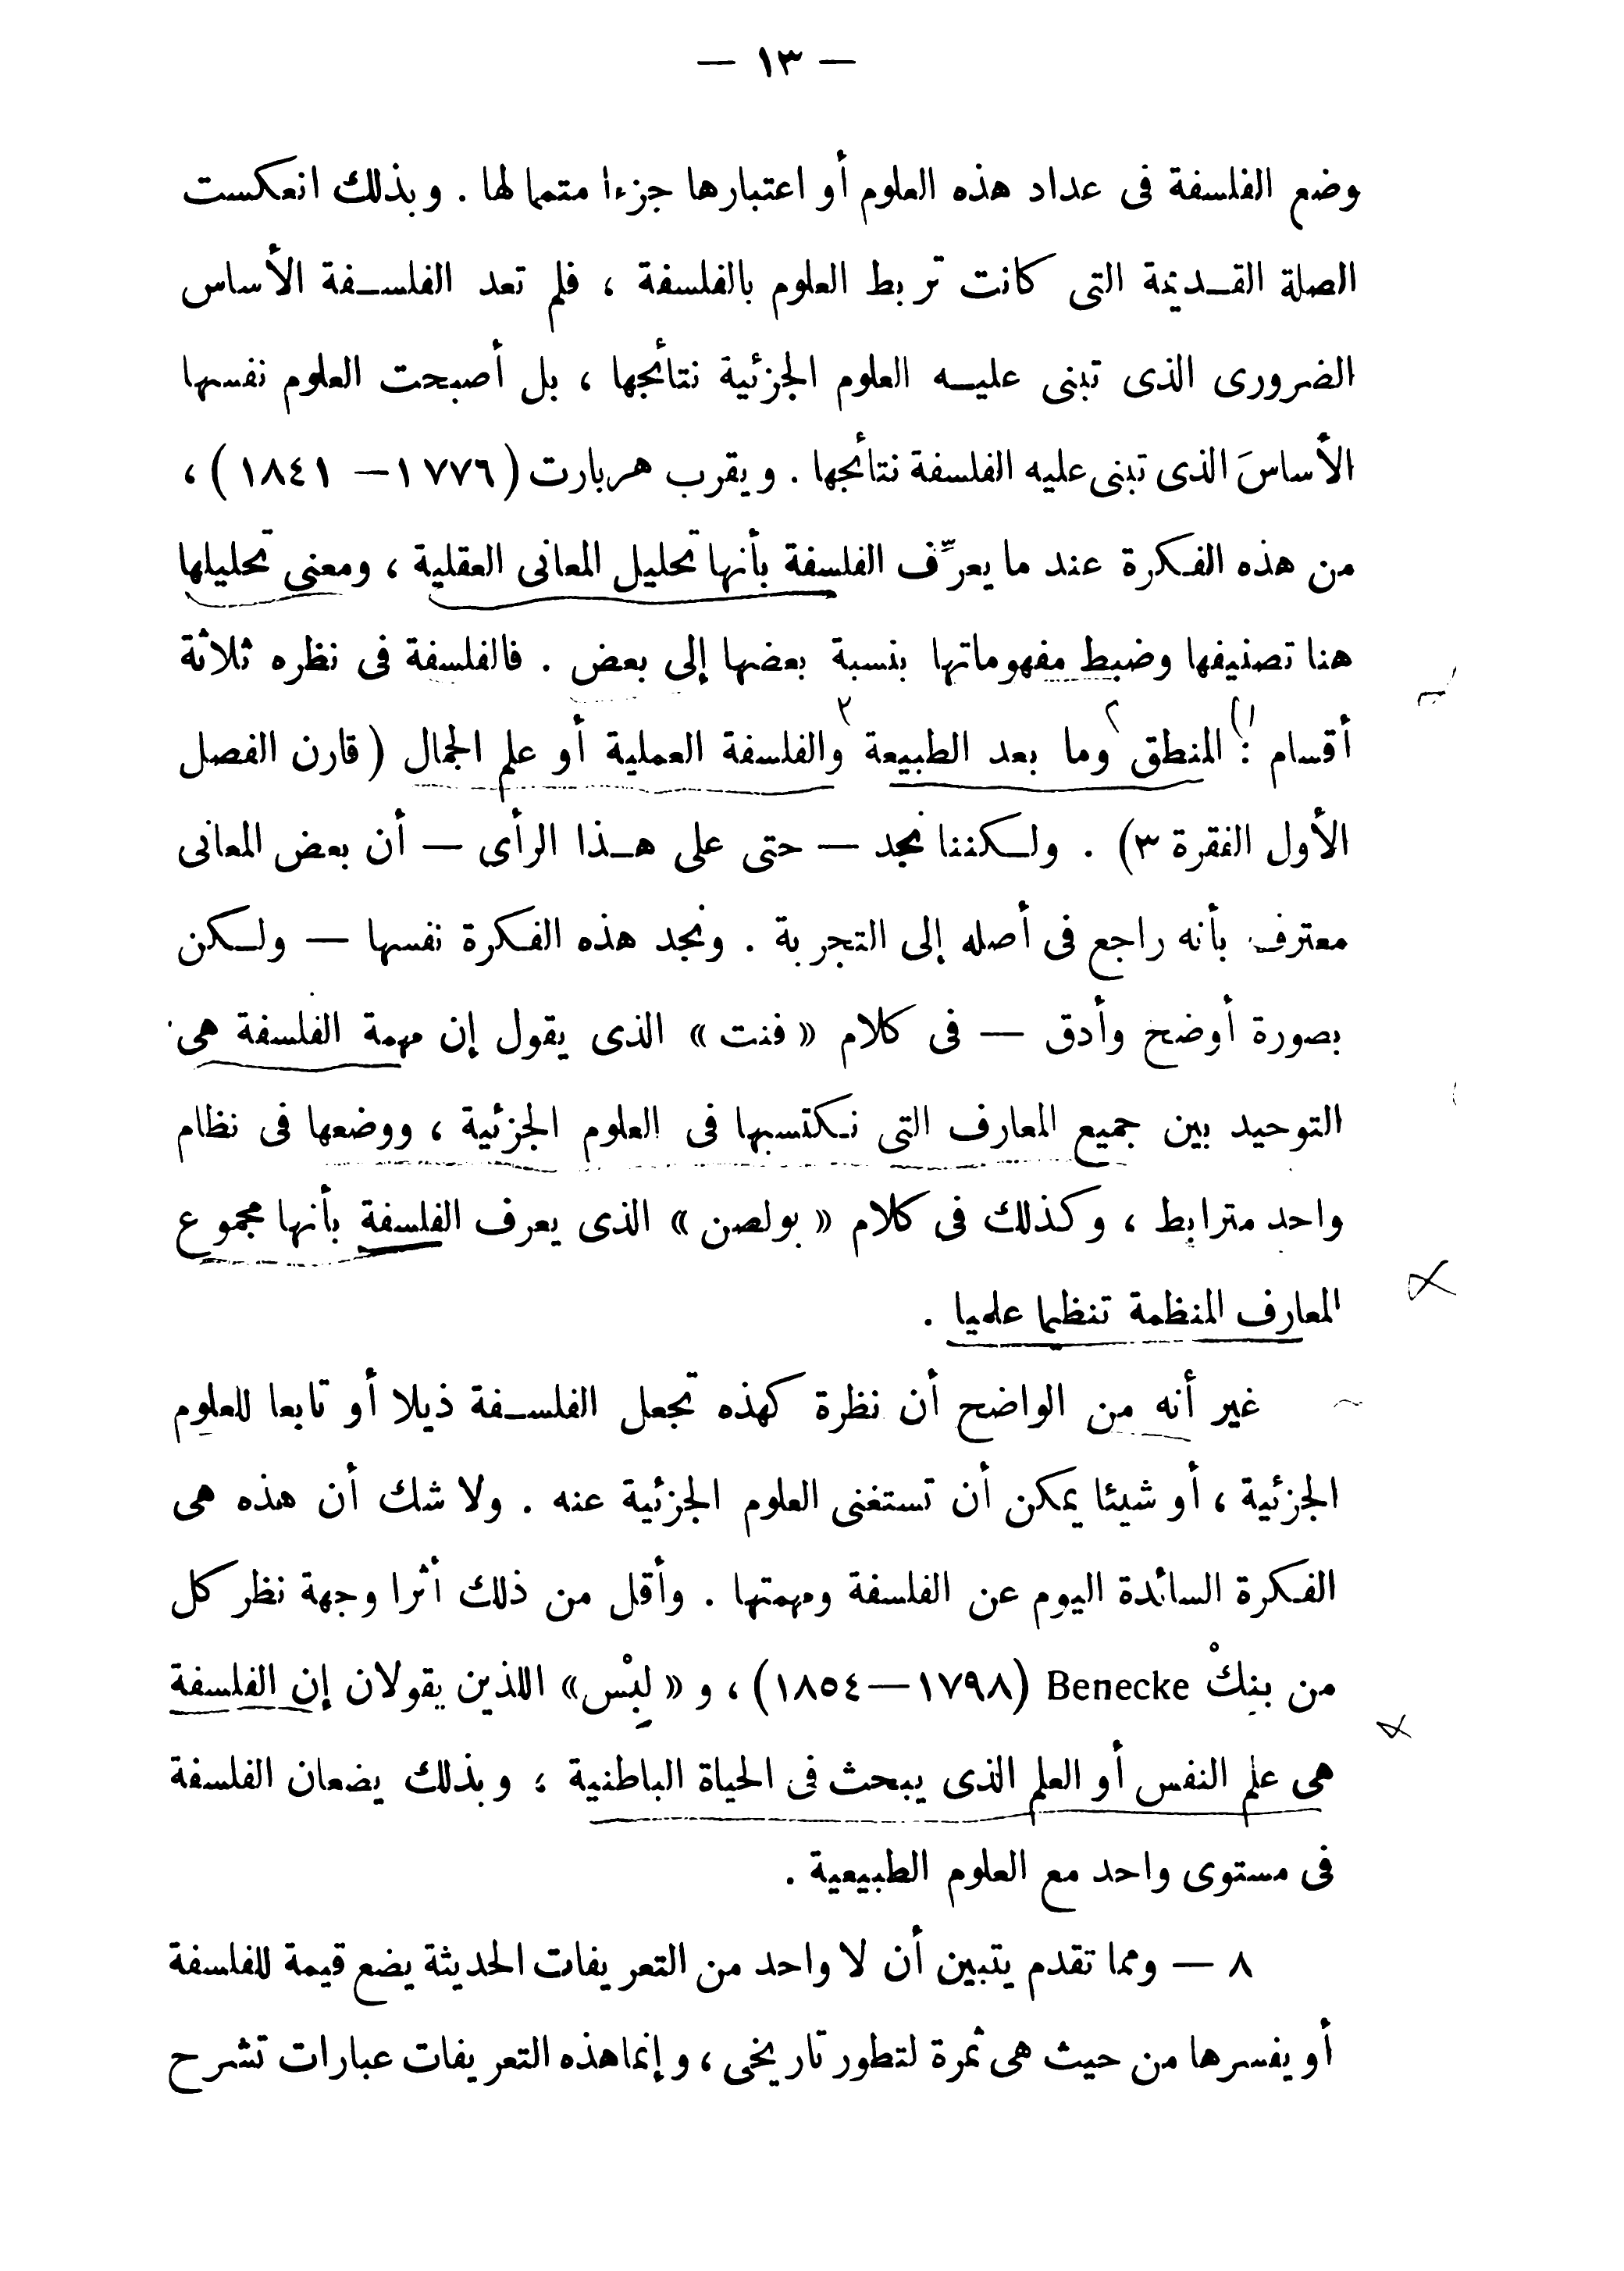 — ١٣ —
وضع الفلسفة فى عداد هذه العلوم أو اعتبارها جزءا متمما لها . وبذلك انعكست
الصلة القديمة التى كانت تربط العلوم بالفلسفة ، فلم تعد الفلسفة الأساس
الضرورى الذى تبنى عليه العلوم الجزئية نتائجها ، بل أصبحت العلوم نفسها
الأساسَ الذى تبنى عليه الفلسفة نتائجها . ويقرب هربارت (١٧٧٦ — ١٨٤١) ،
من هذه الفكرة عند ما يعرِّف الفلسفة بأنها تحليل المعانى العقلية ، ومعنى تحليلها
هنا تصنيفها وضبط مفهوماتها بنسبة بعضها إلى بعض . فالفلسفة فى نظره ثلاثة
أقسام : المنطق وما بعد الطبيعة والفلسفة العملية أو علم الجمال ( قارن الفصل
الأول الفقرة ٣) . ولكننا نجد — حتى على هذا الرأى — أن بعض المعانى
معترف بأنه راجع فى أصله إلى التجربة . ونجد هذه الفكرة نفسها — ولكن
بصورة أوضح وأدق — فى كلام « فنت » الذى يقول إن مهمة الفلسفة هى
التوحيد بين جميع المعارف التى نكتسبها فى العلوم الجزئية ، ووضعها فى نظام
واحد مترابط ، وكذلك فى كلام « بولصن » الذى يعرف الفلسفة بأنها مجموع
المعارف المنظمة تنظيما علميا .
غير أنه من الواضح أن نظرة كهذه تجعل الفلسفة ذيلا أو تابعا للعلوم
الجزئية ، أو شيئا يمكن أن تستغنى العلوم الجزئية عنه . ولا شك أن هذه هى
الفكرة السائدة اليوم عن الفلسفة ومهمتها . وأقل من ذلك أثرا وجهة نظر كل
من بنِكْ Benecke (١٧٩٨—١٨٥٤) ، و « لِبْس » اللذين يقولان إن الفلسفة
هى علم النفس أو العلم الذى يبحث فى الحياة الباطنية ؛ وبذلك يضعان الفلسفة
فى مستوى واحد مع العلوم الطبيعية .
٨ — ومما تقدم يتبين أن لا واحد من التعريفات الحديثة يضع قيمة للفلسفة
أو يفسرها من حيث هى ثمرة لتطور تاريخى ، وإنما هذه التعريفات عبارات تشرح